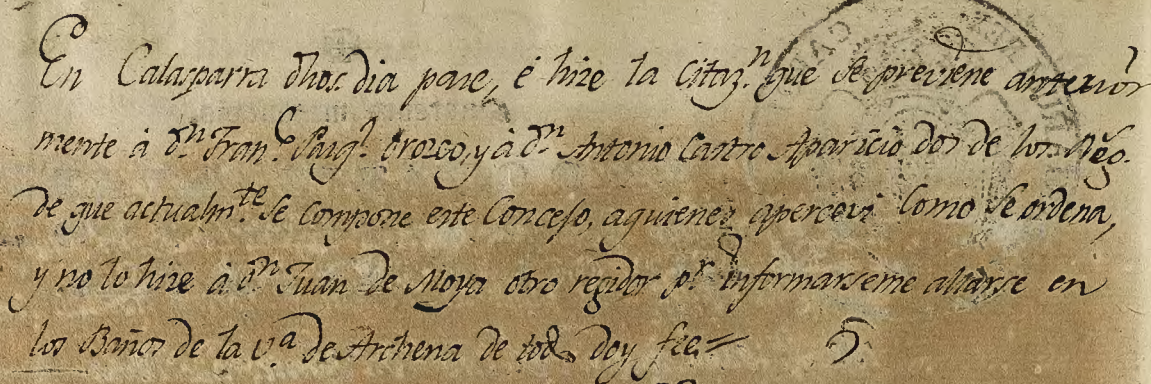 En Calasparra dhos. dia pase, é hize la citaz.n que se previene anterior
mente à d.n Fran.co Orozco, y à d.n Antonio Castro Aparicio dos de los Reg.
de que actualm.te se compone este Concejo, aquienes apercevi como se ordena,
y no lo hize à d.n Juan de Moya otro regidor p.r informarseme allarse en
los Baños de la v.a de Archena de todo doy fee.=